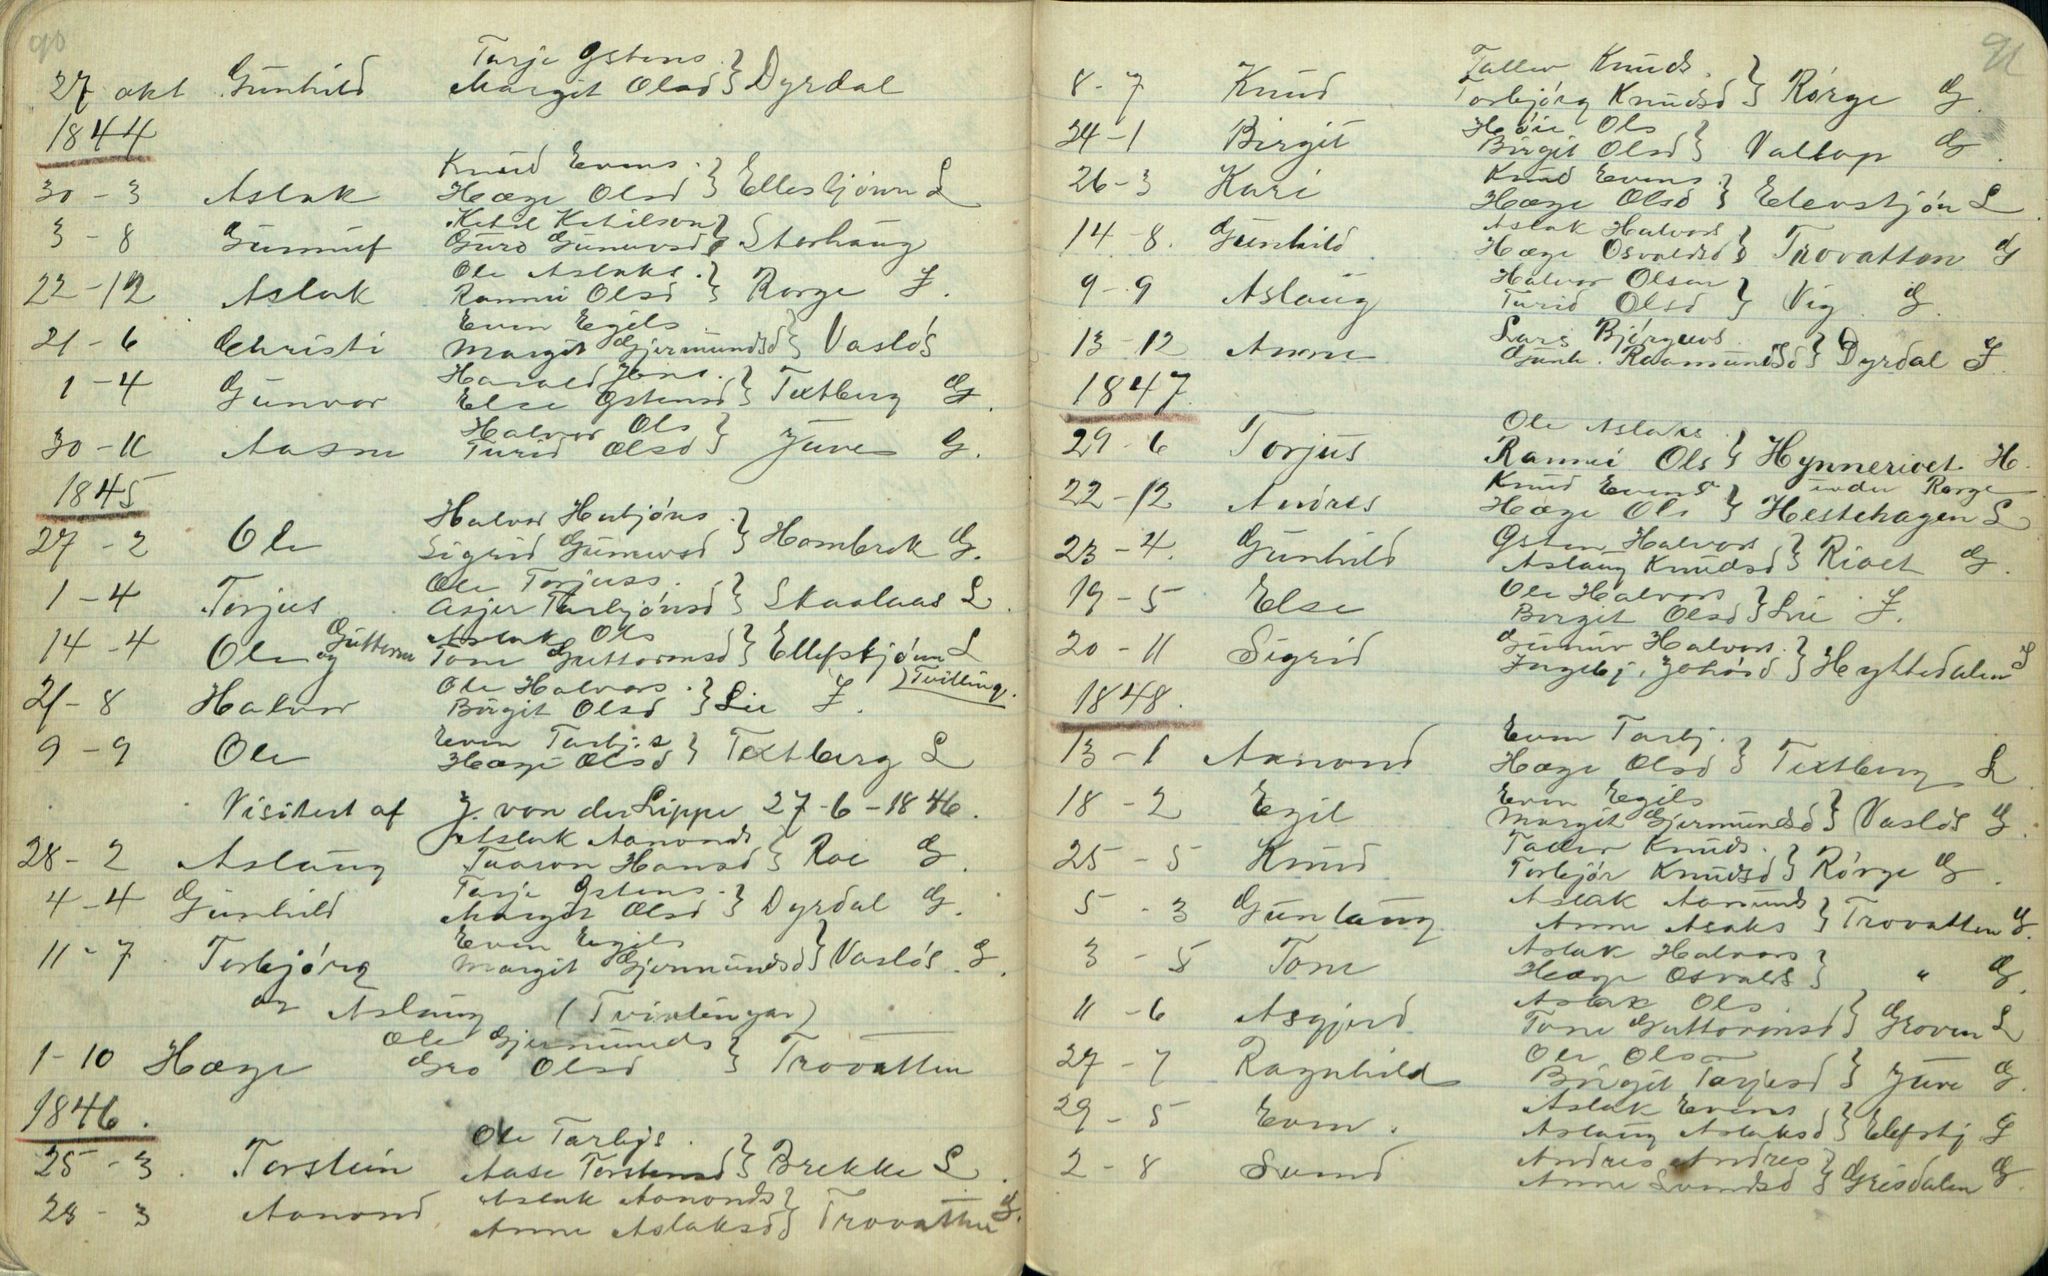 90
Tarje Østens.
27 okt Gunhild Margit Olsd } Dyrdal
1844
Knud Evens.
30 - 3 Aslak Hæge Olsd } Ellestjønn L
Ketil Ketilson
3 - 8 Gunnuf Guro Gunuvsd } Storhaug
Ole Aslaks.
22 - 12 Aslak Rannei Olsd } Rorge J.
Even Egils
21 - 6 Christi Margit Gjermundsd } Vasløs
Harald Jons.
1 - 4 Gunvor Else Østensd } Textberg G.
Halvor Ols
30 - 11 Aasne Turid Olsd } Juve G.
1845
Halvor Herbjøns.
27 - 2 Ole Sigrid Gunuvsd } Hombrek G.
Ole Torjuss.
1 - 4 Torjus Asjer Tarbjønsd } Skaalaas L.
Aslak Ols
14 - 4 Ole og Guttorm Tone Guttormsd } Ellefstjønn L
Ole Halvors. ) Tvilling.
21 - 8 Halvor Birgit Olsd } Lie J.
Even Tarbj.s
9 - 9 Ole Hæge Olsd } Textberg L
Visitert af J. von der Lippe 27-6-1846.
Aslak Aanonds
28 - 2 Aslaug Taaron Hansd } Roe G.
Tarje Østens.
4 - 4 Gunhild Margit Olsd } Dyrdal G.
Even Egils
11 - 7 Torbjørg Margit Gjermundsd } Vasløs. G.
og Aslaug (Tvinlingar)
Ole Gjermunds
1 - 10 Hæge Gro Olsd } Trovatten
1846.
Ole Tarbjs.
25 - 3. Torstein Aase Torsteinsd } Brekke L.
Aslak Aanonds
28 - 3 Aanond Anne Aslaksd } Trovatten G.
91
Tallev Knuds.
8 - 7 Knud Torbjørg Knudsd } Rørge G.
Høie Ols
24 - 1 Birgit Birgit Olsd } Vallop G.
Knud Evens.
26 - 3 Kari Hæge Olsd } Elevstjøn L.
Aslak Halvors
14 - 8. Gunhild Hæge Osvaldsd } Trovatten G
Halvor Olsen
9 - 9 Aslaug Turid Olsd } Vig G.
Lars Bjørguvs.
13 - 12 Anne Gunh. Raamundsd } Dyrdal J.
1847.
Ole Aslaks.
29 - 6 Torjus Rannei Ols } Hynnerivet. H.
Knud Evens under Rorge
22 - 12 Andres Hæge Ols } Hestehagen L
Østen Halvors
23 - 4. Gunhild Aslaug Knudsd } Rioet G.
Ole Halvors
19 - 5 Else Birgit Olsd } Lie J.
Gunuv Halvors.
20 - 11 Sigrid Ingebj. Johósd } Hyttedalen J
1848.
Even Tarbj.
13 - 1 Aanond Hæge Olsd } Textberg L
Even Egils
18 - 2 Egil Margit Gjermundsd } Vasløs G.
Tallev Knuds.
25 - 5 Knud Torbjør Knudsd } Rørge G.
Aslak Aanunds
5 - 3 Gunlaug Anne Asaks } Trovatten G.
Aslak Halvors
3 - 8 Tone Hæge Osvalds } " G.
Aslak Ols
11 - 6 Asgjerd Tone Guttormsd } Groven L
Ole Ols
27 - 7 Ragnhild Birgit Tarjesd } Juve G.
Aslak Evens
29 - 5 Even. Aslaug Aslaksd } Elefstj G
Andres Andres
2 - 8 Svend Anne Svendsd } Grisdalen G.